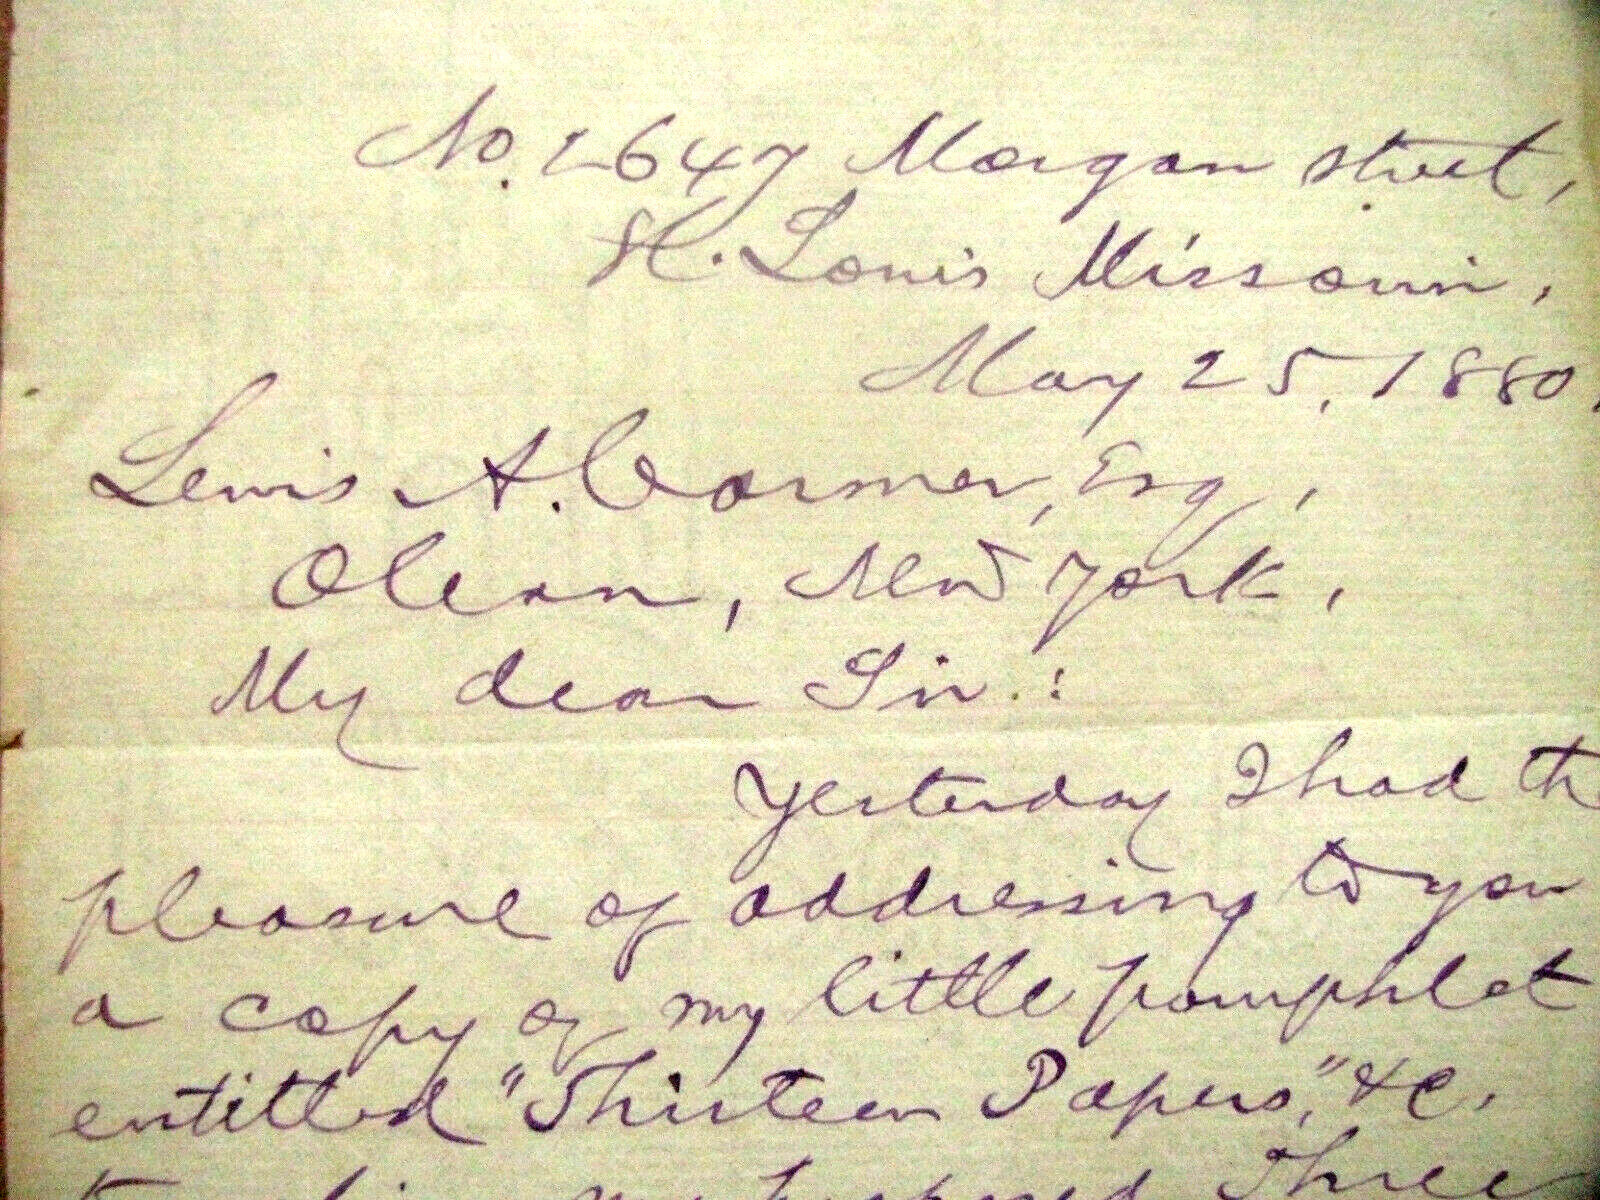 No. 2647 Morgan street,
St. Louis Missouri,
May 25, 1880,
Lewis A. Cormer, Esq,
Olean, New York,
My dear Sir:
Yesterday I had the
pleasure of addressing to you
a copy of my little pamphlet
entitled "Thirteen Papers," &c.
Three